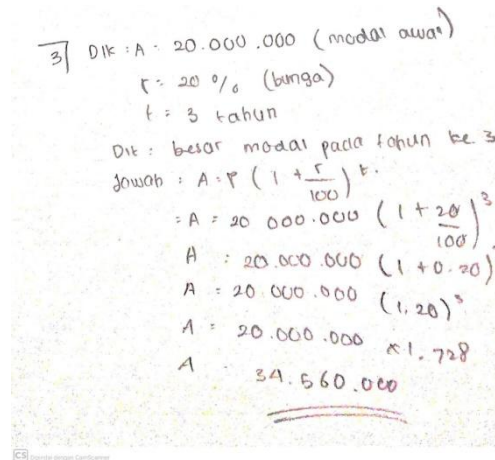 3] Dik : A = 20.000.000 (modal awal)
r = 20 % (bunga)
t = 3 tahun
Dit : besar modal pada tahun ke 3
Jawab : A = P (1 + r/100)^t.
= A = 20 000.000 (1 + 20/100)^3
A : 20.000.000 (1 + 0.20)
A = 20.000.000 (1,20)^3
A = 20.000.000 x 1.728
A 34.560.000
CS Dipindai dengan CamScanner